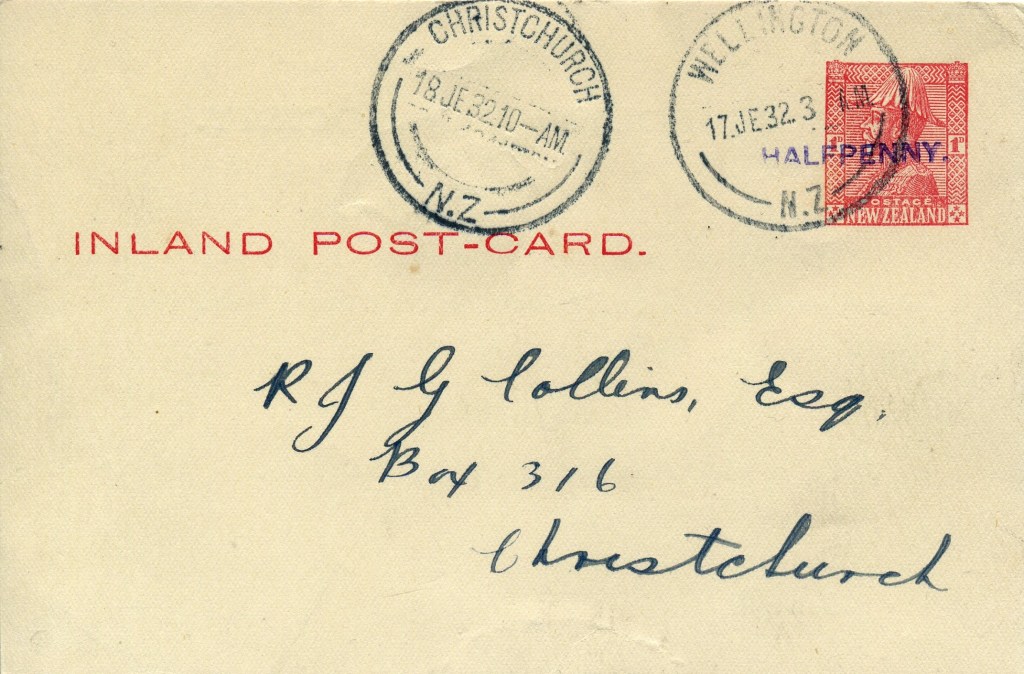 CHRISTCHURCH
18 JE 32.10—AM
N.Z
WELLINGTON
17.JE32.3
N.Z
1D 1D
HALFPENNY.
POSTAGE
NEW ZEALAND
INLAND POST-CARD.
R J G Collins, Esq.
Box 316
Christchurch